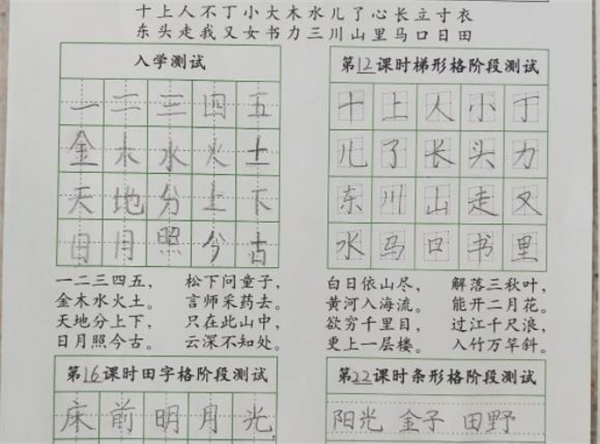 十上人不丁小大木水儿了心长立寸衣
东头走我又女书力三川山里马口日田
入学测试
一二三四五
金木水火土
天地分上下
日月照今古
一二三四五,
金木水火土。
天地分上下,
日月照今古。
松下问童子,
言师采药去。
只在此山中,
云深不知处。
第12课时梯形格阶段测试
十上人小丁
儿了长头力
东川山走又
水马口书里
白日依山尽,
黄河入海流。
欲穷千里目,
更上一层楼。
解落三秋叶,
能开二月花。
过江千尺浪,
入竹万竿斜。
第16课时田字格阶段测试
床前明月光
第22课时条形格阶段测试
阳光 金子 田野